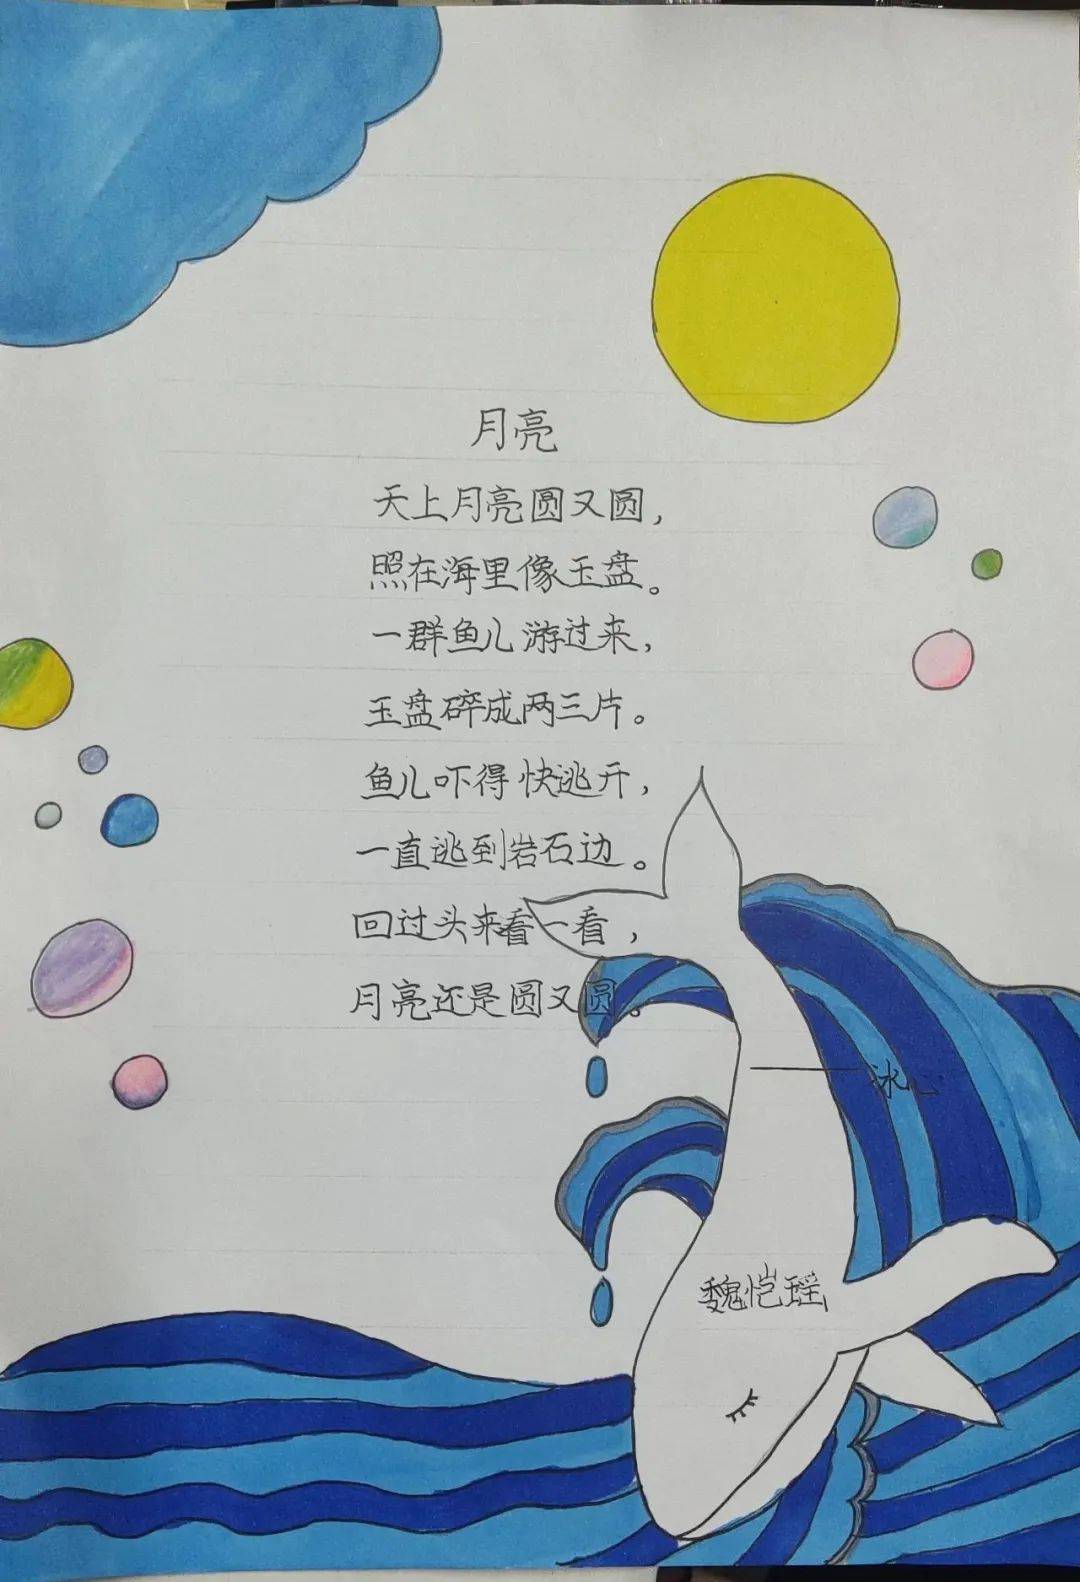 月亮
天上月亮圆又圆，
照在海里像玉盘。
一群鱼儿游过来，
玉盘碎成两三片。
鱼儿吓得快逃开，
一直逃到岩石边。
回过头来看一看，
月亮还是圆又圆。
——冰心
魏恺瑶